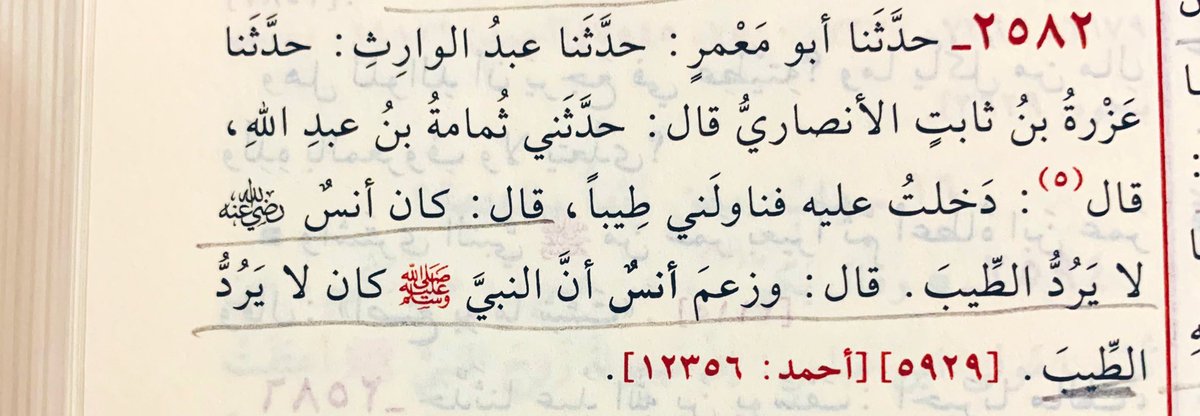 ٢٥٨٢ـ حدَّثَنا أبو مَعْمرٍ: حدَّثَنا عبدُ الوارِثِ: حدَّثَنا
عَزْرةُ بنُ ثابتٍ الأنصاريُّ قال: حدَّثَني ثُمامةُ بنُ عبدِ اللهِ،
قال(٥): دَخلتُ عليه فناولَني طِيباً، قال: كان أنسٌ رضي الله عنه
لا يَرُدُّ الطِّيبَ. قال: وزعمَ أنسٌ أنَّ النبيَّ ﷺ كان لا يَرُدُّ
الطِّيبَ. [٥٩٢٩] [أحمد: ١٢٣٥٦].